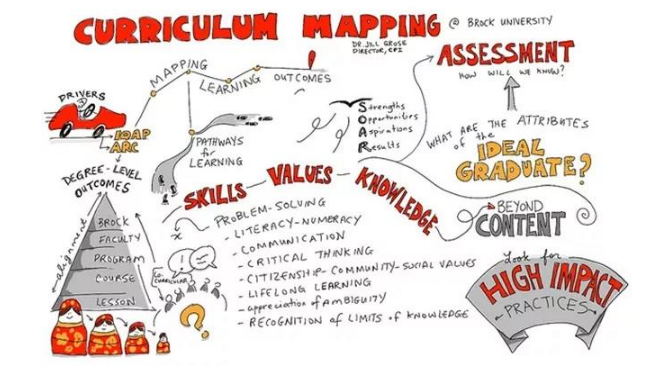 CURRICULUM MAPPING @ BROCK UNIVERSITY
DR. JILL GROSE
DIRECTOR, CPI
DRIVERS
MAPPING
LEARNING
OUTCOMES
IQAP
ARC
PATHWAYS
for
LEARNING
Strengths
Opportunities
Aspirations
Results
ASSESSMENT
HOW WILL WE KNOW?
WHAT ARE THE ATTRIBUTES
of the
IDEAL
GRADUATE?
DEGREE-LEVEL
OUTCOMES
alignment
BROCK
FACULTY
PROGRAM
COURSE
LESSON
SKILLS - VALUES - KNOWLEDGE
PROBLEM-SOLVING
- LITERACY-NUMERACY
- COMMUNICATION
- CRITICAL THINKING
- CITIZENSHIP-COMMUNITY-SOCIAL VALUES
- LIFELONG LEARNING
- appreciation of AMBIGUITY
- RECOGNITION of LIMITS of KNOWLEDGE
CO-
CURRICULAR
?
BEYOND
CONTENT
Look for
HIGH IMPACT
PRACTICES